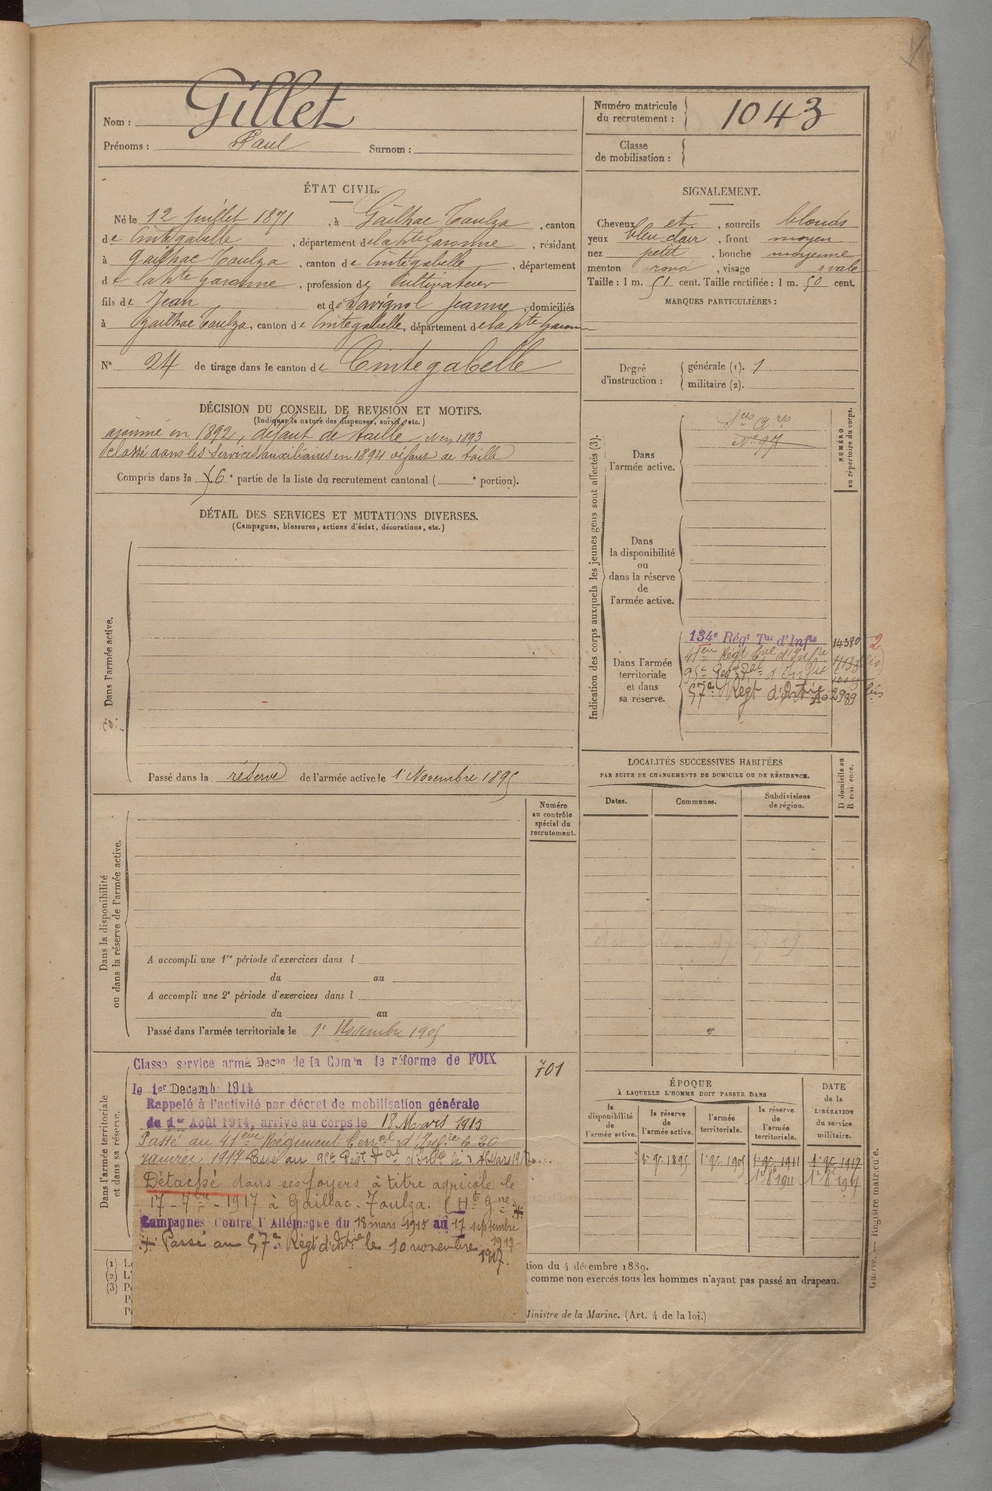 Nom : Gillet
Prénoms : Paul Surnom :
Numéro matricule du recrutement : 1043
Classe de mobilisation :
ÉTAT CIVIL.
Né le 12 Juillet 1871, à Gailhac Taulza, canton
de Cintegabelle, département de la Hte Garonne, résidant
à Gailhac Taulza, canton de Cintegabelle, département
de la Hte Garonne, profession de Cultivateur
fils de Jean et de Savignol Jeanne, domiciliés
à Gailhac Taulza, canton de Cintegabelle, département de la Hte Garonne
N° 24 de tirage dans le canton de Cintegabelle
SIGNALEMENT.
Cheveux et, sourcils blonds
yeux bleu clair, front moyen
nez petit, bouche moyenne
menton rond, visage ovale
Taille : 1 m. 51 cent. Taille rectifiée : 1 m. 50 cent.
MARQUES PARTICULIÈRES :
Degré d'instruction : générale (1). 1
militaire (2).
DÉCISION DU CONSEIL DE REVISION ET MOTIFS.
(Indiquer la nature des dispenses, sursis, etc.)
ajourné en 1892, défaut de taille, id en 1893
Classé dans les services auxiliaires en 1894 défaut de taille
Compris dans la 6e partie de la liste du recrutement cantonal ( e portion).
DÉTAIL DES SERVICES ET MUTATIONS DIVERSES.
(Campagnes, blessures, actions d'éclat, décorations, etc.)
Dans l'armée active.
Passé dans la réserve de l'armée active le 1 Novembre 1895
Indication des corps auxquels les jeunes gens sont affectés (3).
NUMÉRO au répertoire du corps.
Dans l'armée active.
Dans la disponibilité ou dans la réserve de l'armée active.
Dans l'armée territoriale et dans sa réserve.
134e Régt Tal d'Infie 14380
LOCALITÉS SUCCESSIVES HABITÉES
PAR SUITE DE CHANGEMENTS DE DOMICILE OU DE RÉSIDENCE.
Dates. Communes. Subdivisions de région.
D domicile ou R résidence.
Dans la disponibilité ou dans la réserve de l'armée active.
Numéro au contrôle spécial du recrutement.
A accompli une 1re période d'exercices dans l
du au
A accompli une 2e période d'exercices dans l
du au
Passé dans l'armée territoriale le 1r Novembre 1905
Dans l'armée territoriale et dans sa réserve.
701
Classé service armé Decon de la Comon de réforme de FOIX
le 1er Décemb. 1914
Rappelé à l'activité par décret de mobilisation générale
du 1er Août 1914, arrivé au corps le 18 Mars 1915
Passé au 41eme Régiment Terral d'Infie le 20
janvier 1917 Passé au 95e Regt Tal d'Infie le
Détaché dans ses foyers à titre agricole le
17 - 7bre - 1917 à Gaillac-Taulza. (Hte Gne)
Campagnes contre l'Allemagne du 18 mars 1915 au 17 septembre
1917
Passé au 57e Régt d'Artrie le 10 novembre
1917.
ÉPOQUE
À LAQUELLE L'HOMME DOIT PASSER DANS
DATE de la LIBÉRATION du service militaire.
la disponibilité de l'armée active.
la réserve de l'armée active.
l'armée territoriale.
la réserve de l'armée territoriale.
1r 9e 1895 1r 9e 1905 1r 9e 1911 1r 9e 1917
tion du 4 décembre 1889.
comme non exercés tous les hommes n'ayant pas passé au drapeau.
Ministre de la Marine. (Art. 4 de la loi.)
Registre matricule.